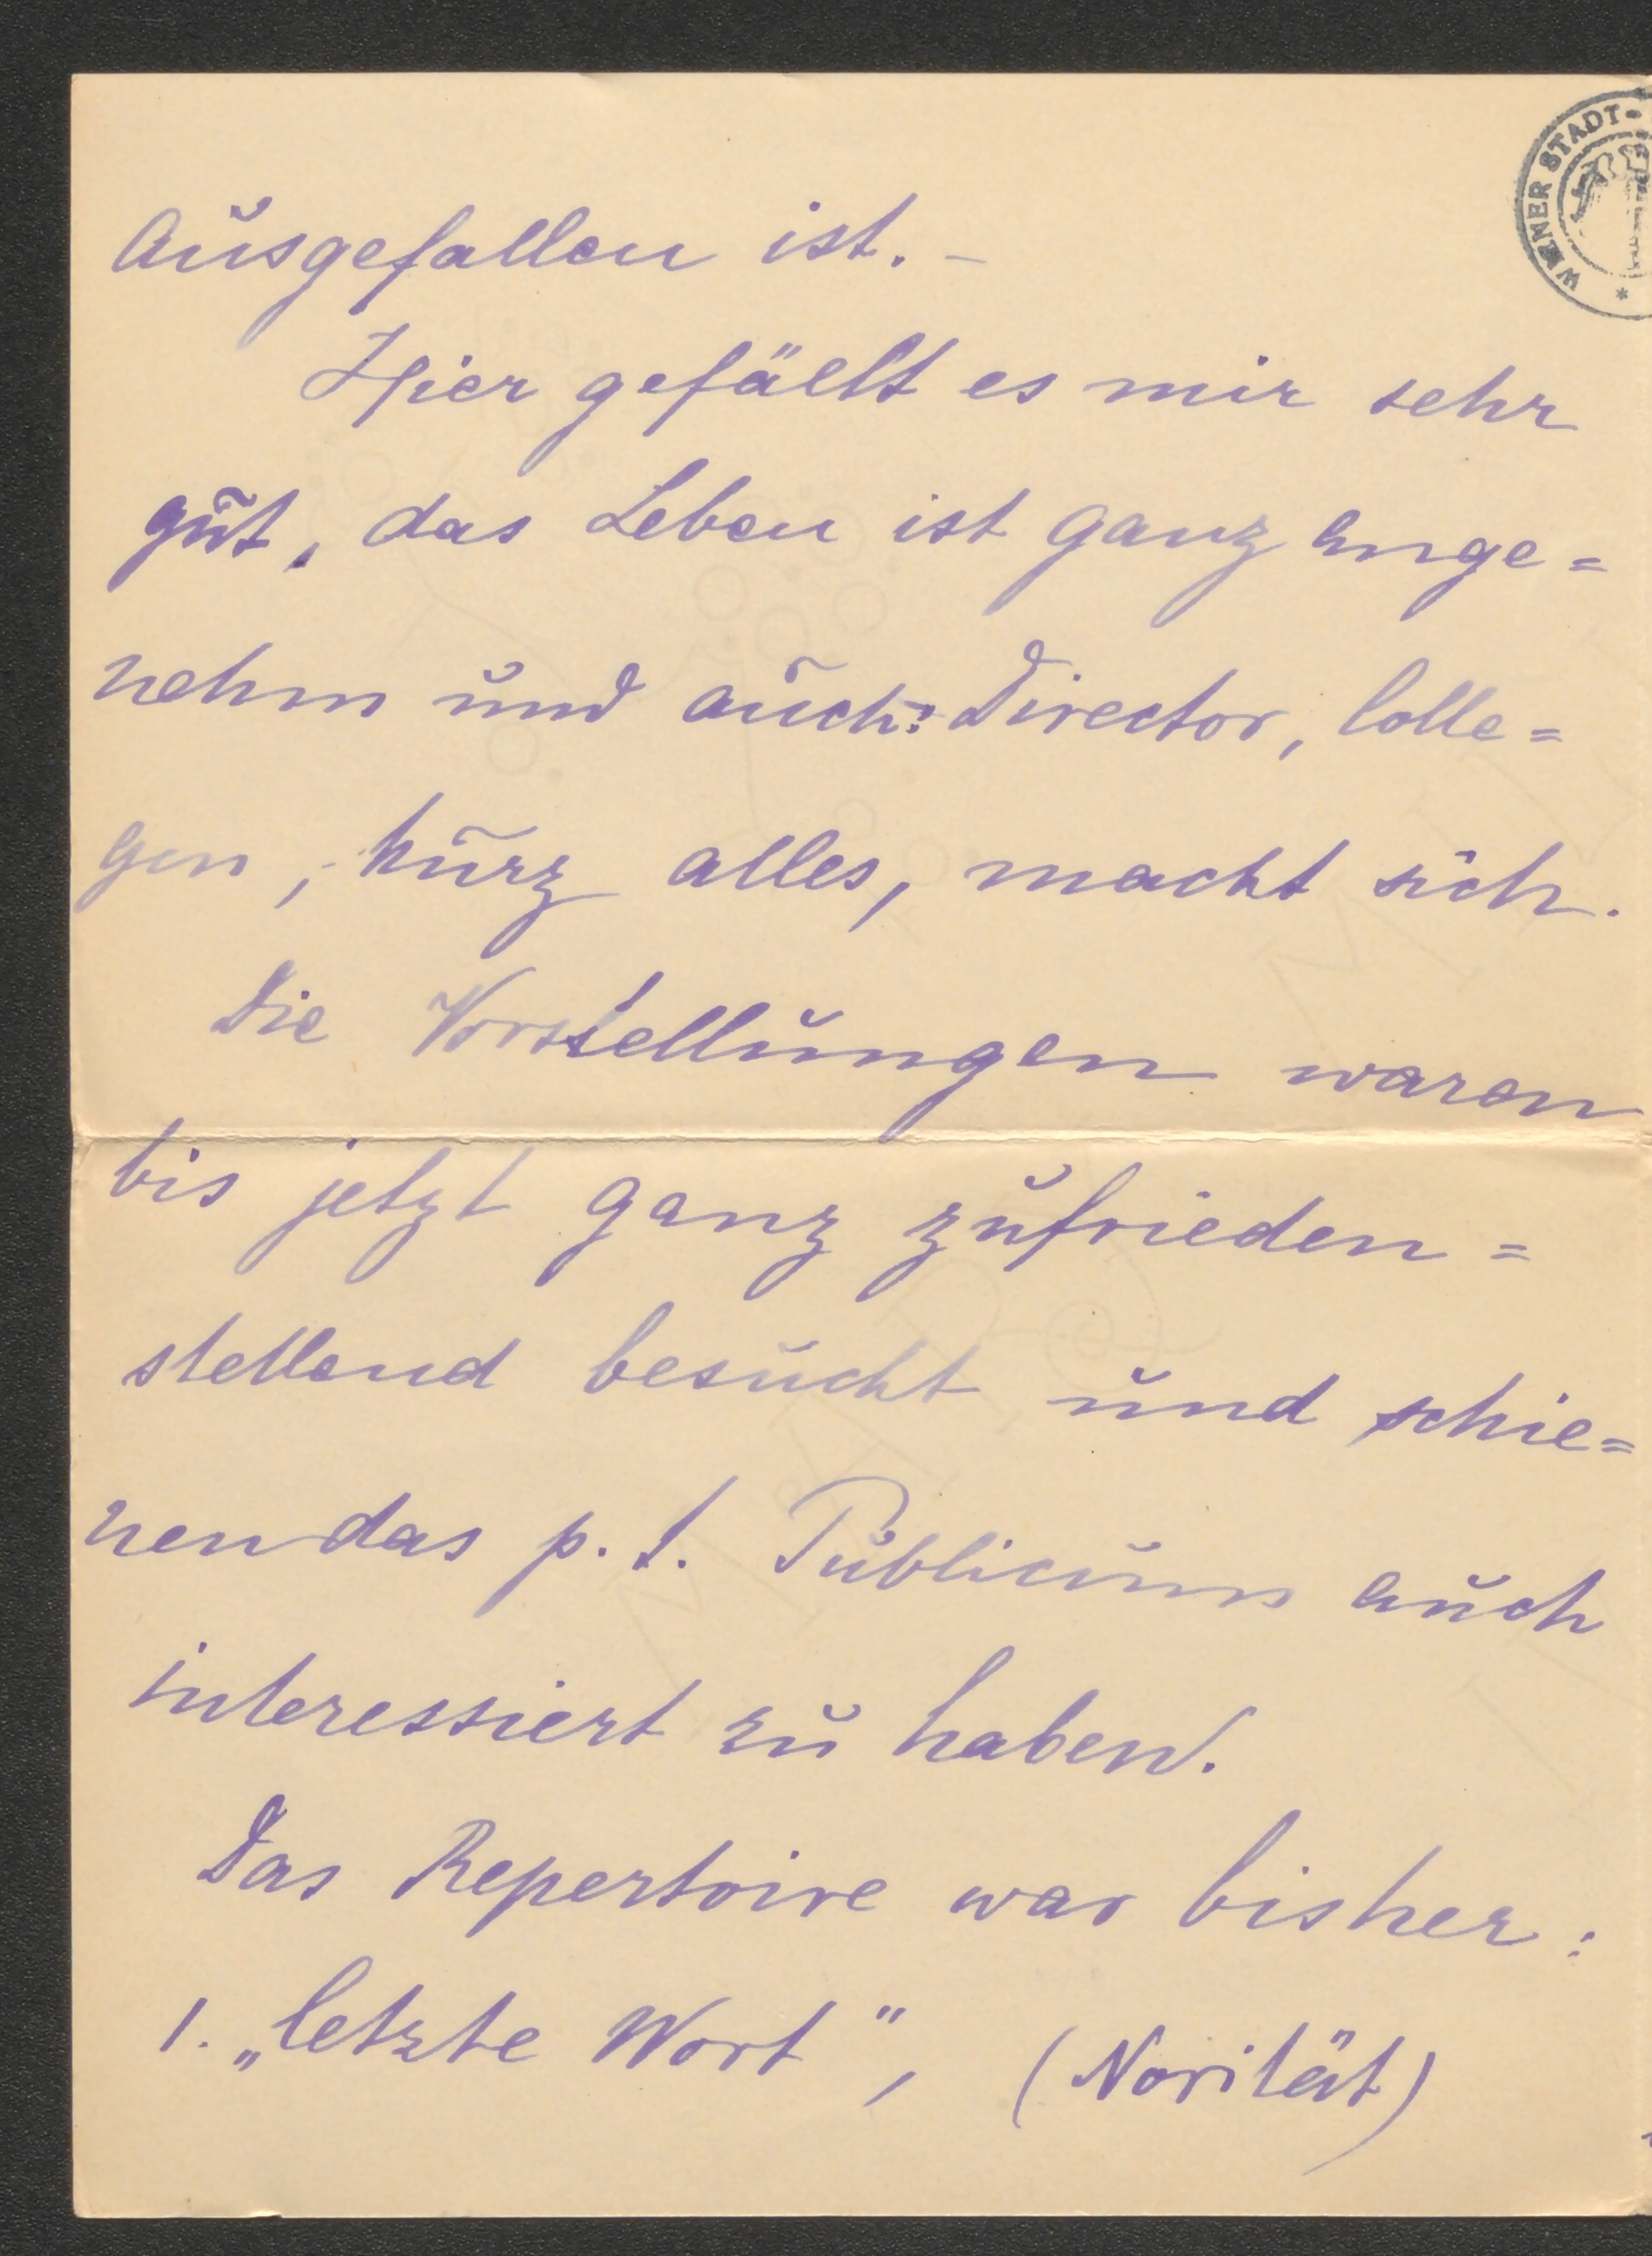 WIENER STADT-
ausgefallen ist. –
Hier gefällt es mir sehr
gut, das Leben ist ganz ange=
nehm und auch: Director, Colle=
gen, kurz alles, macht sich.
Die Vorstellungen waren
bis jetzt ganz zufrieden=
stellend besucht und schie=
nen das p. t. Publicum auch
interessiert zu haben.
Das Repertoire war bisher:
1. „letzte Wort", (Novität)